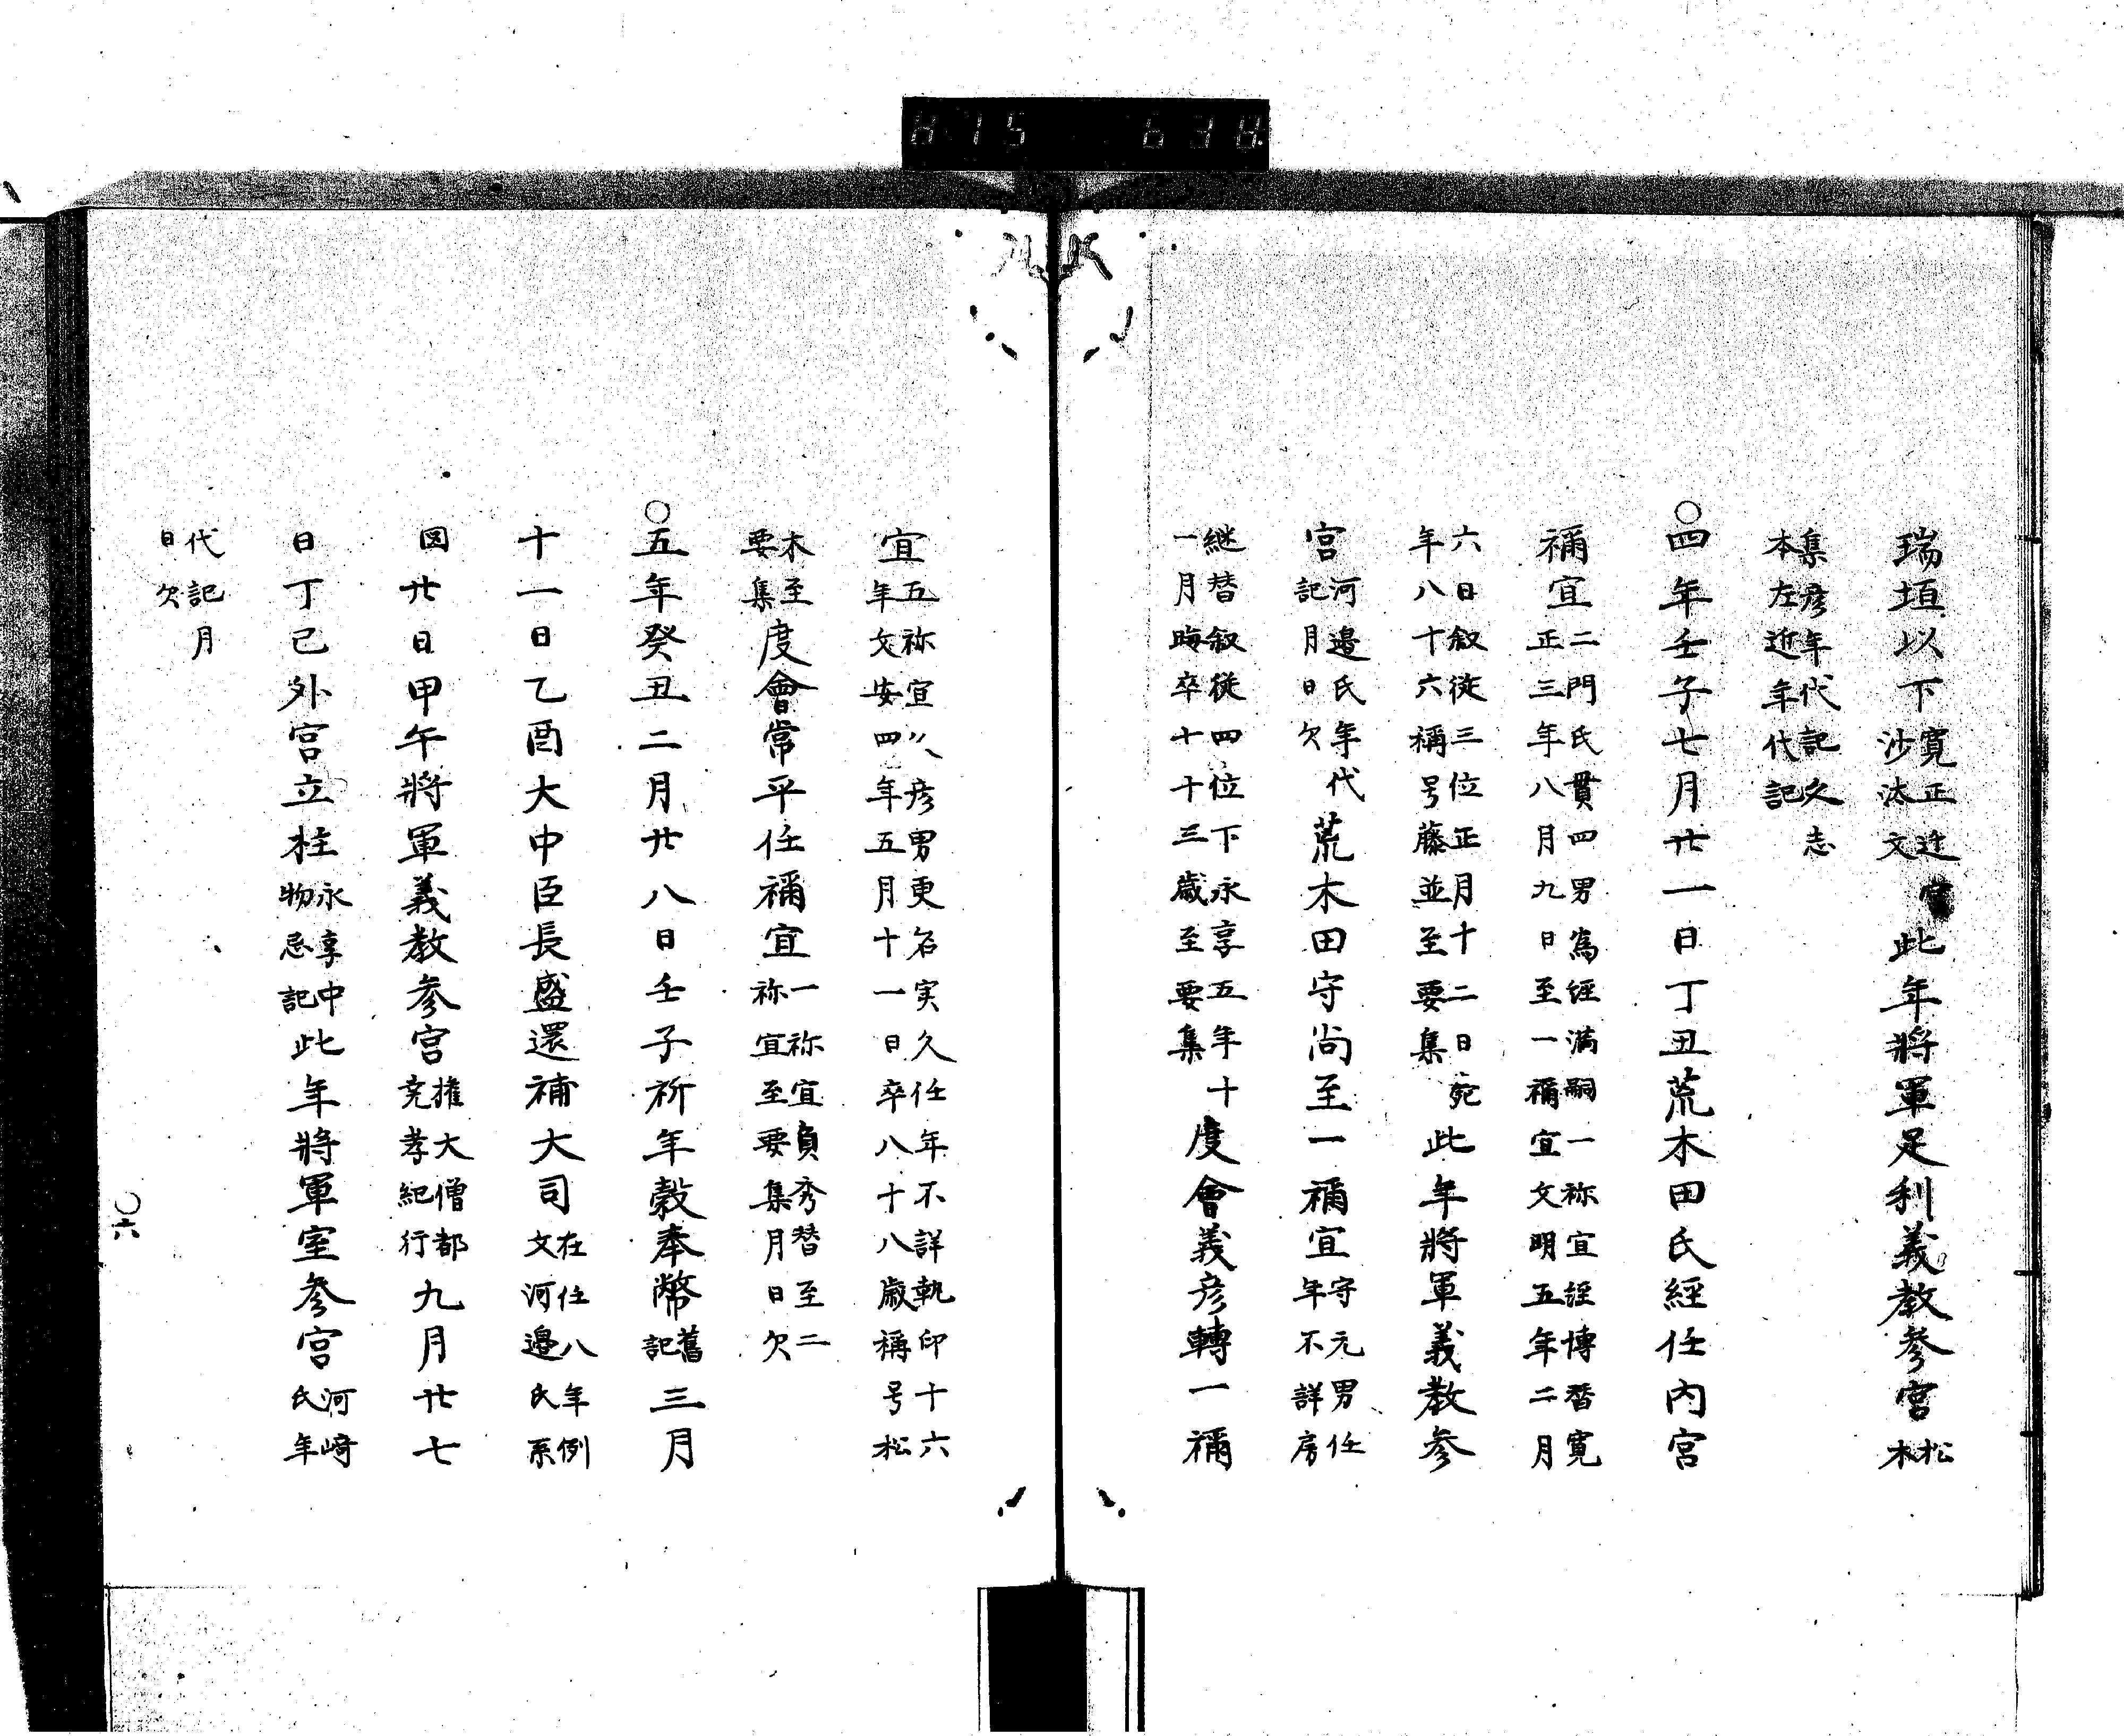 瑞垣以下寛正迁宮沙汰文此年將軍足利義教參宮松木
集彦年代記久志本左近年代記
○四年壬子七月廿一日丁丑荒木田氏經任内宮
禰宜二門氏貫四男為經満嗣一祢宜經博替寛正三年八月九日至一禰宜文明五年二月
六日叙従三位正月十二日薨年八十六稱号藤並至要集此年將軍義教参
宮河邉氏年代記月日欠荒木田守尚至一禰宜守元男任年不詳房
継替叙従四位下永享五年十一月晦卒十十三歳至要集度會義彦轉一禰
宜五祢宜〻彦男更名実久任年不詳執印十六年文安四年五月十一日卒八十八歳稱号松
木至要集度會常平任禰宜一祢宜貞秀替至二祢宜至要集月日欠
○五年癸丑二月廿八日壬子祈年穀奉幣舊記三月
十一日乙酉大中臣長盛還補大司在任八年例文河邉氏系
図廿日甲午將軍義教參宮権大僧都尭孝紀行九月廿七
日丁巳外宮立柱永享中物忌記此年將軍室參宮河﨑氏年
代記月日欠
○六
615 618